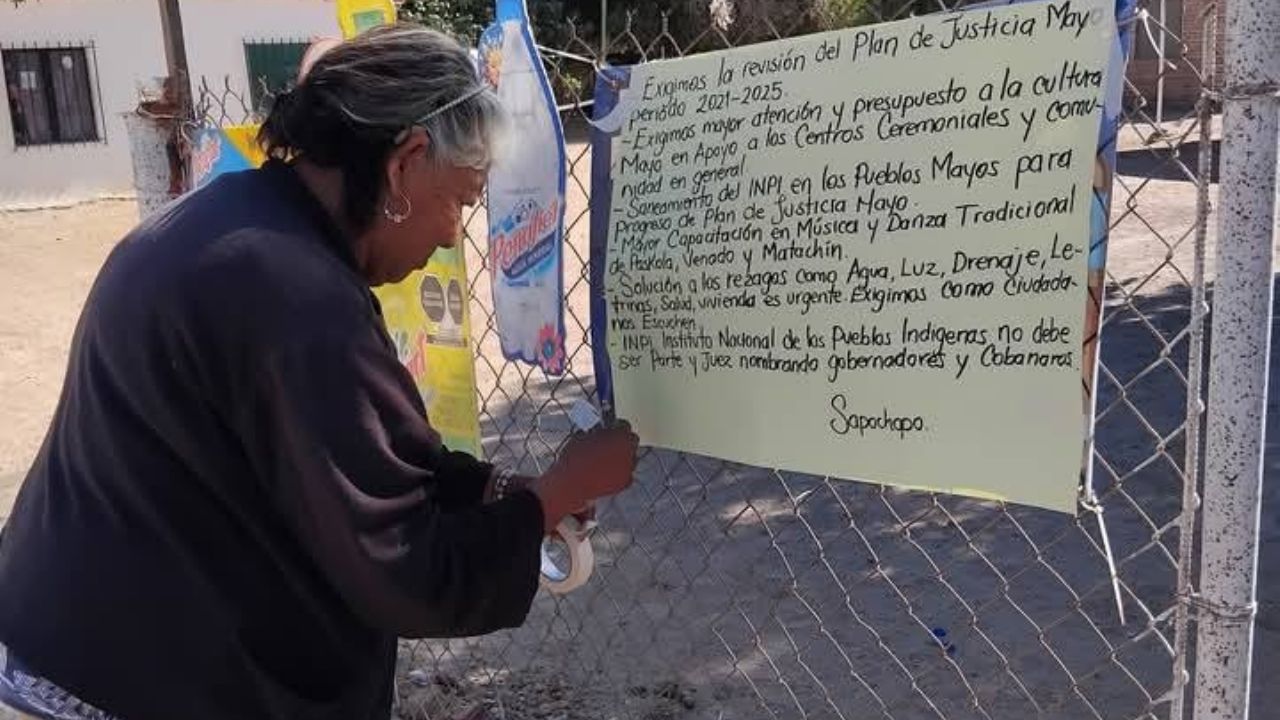 Exigimos la revisión del Plan de Justicia Mayo
periódo 2021-2025.
-Exigimos mayor atención y presupuesto a la cultura
Mayo en Apoyo a los Centros Ceremoniales y comu-
nidad en general
-Saneamiento del INPI en los Pueblos Mayos para
progreso de Plan de Justicia Mayo.
Mayor Capacitación en Música y Danza Tradicional
de Paskola, Venado y Matachín.
-Solución a los rezagos como Agua, Luz, Drenaje, Le-
trinas, Salud, vivienda es urgente. Exigimos como Ciudada-
nos Escuchen.
-INPI Instituto Nacional de los Pueblos Indígenas no debe
ser Parte y Juez nombrando gobernadores y Cobanaros.
Sapochopo.
Peñafiel